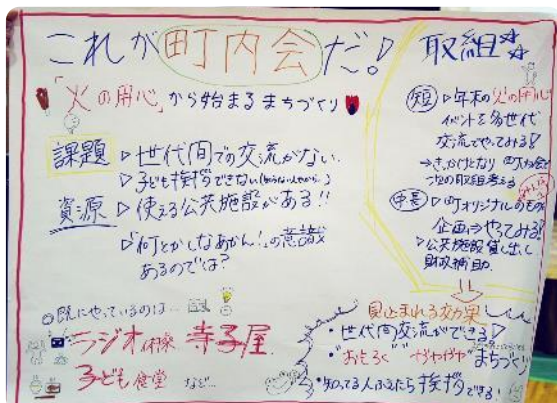 これが町内会だ!
「火の用心」から始まるまちづくり
課題 ▷世代間での交流がない
▷子ども挨拶できない
資源 ▷使える公共施設がある!!
▷「何とかしなあかん!」の意識
あるのでは?
◎既にやっているのは…
ラジオ体操 寺子屋
子ども食堂 など…
取組
短 ▷年末の火の用心
イベントを多世代
交流でやってみる!
→きっかけとなり 町内会で
次の取組考える
中長 ▷町オリジナルのもの
企画⇒やってみる!
▷公共施設貸し出し
財政補助
見込まれる効果
・世代間交流ができる
・"おもろく" "ガヤガヤ" まちづくり
・知ってる人ふえたら挨拶できる!